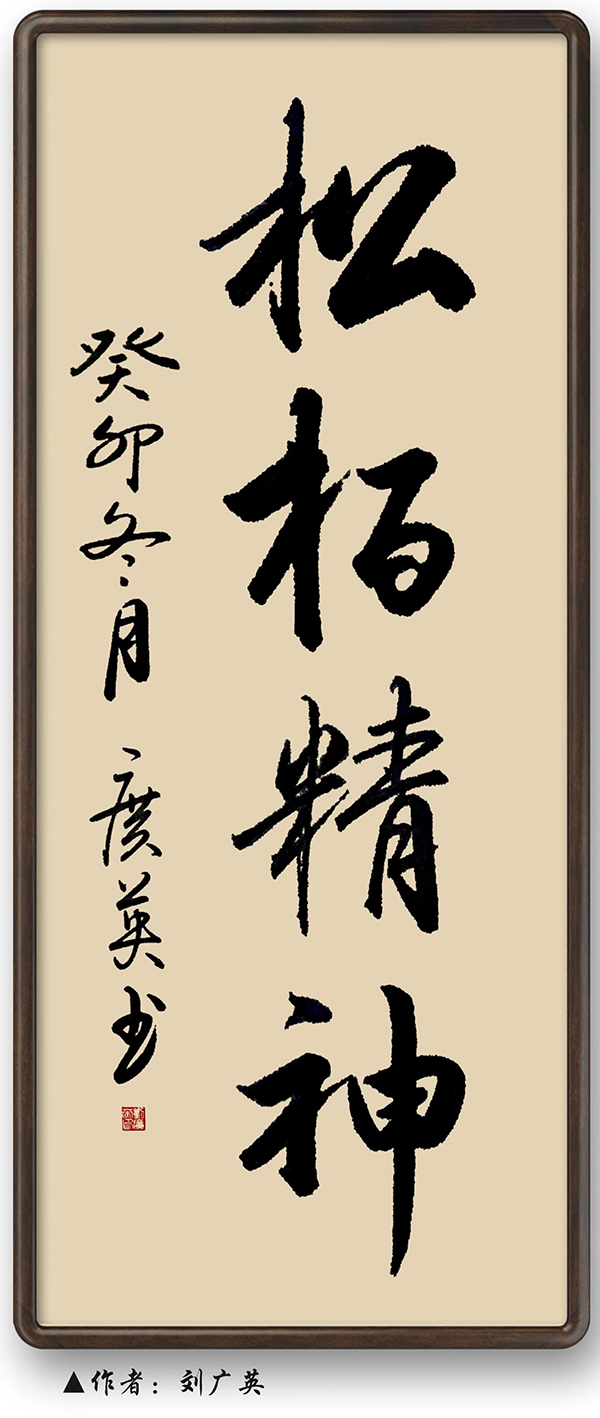 松柏精神
癸卯冬月 广英书
▲作者：刘广英